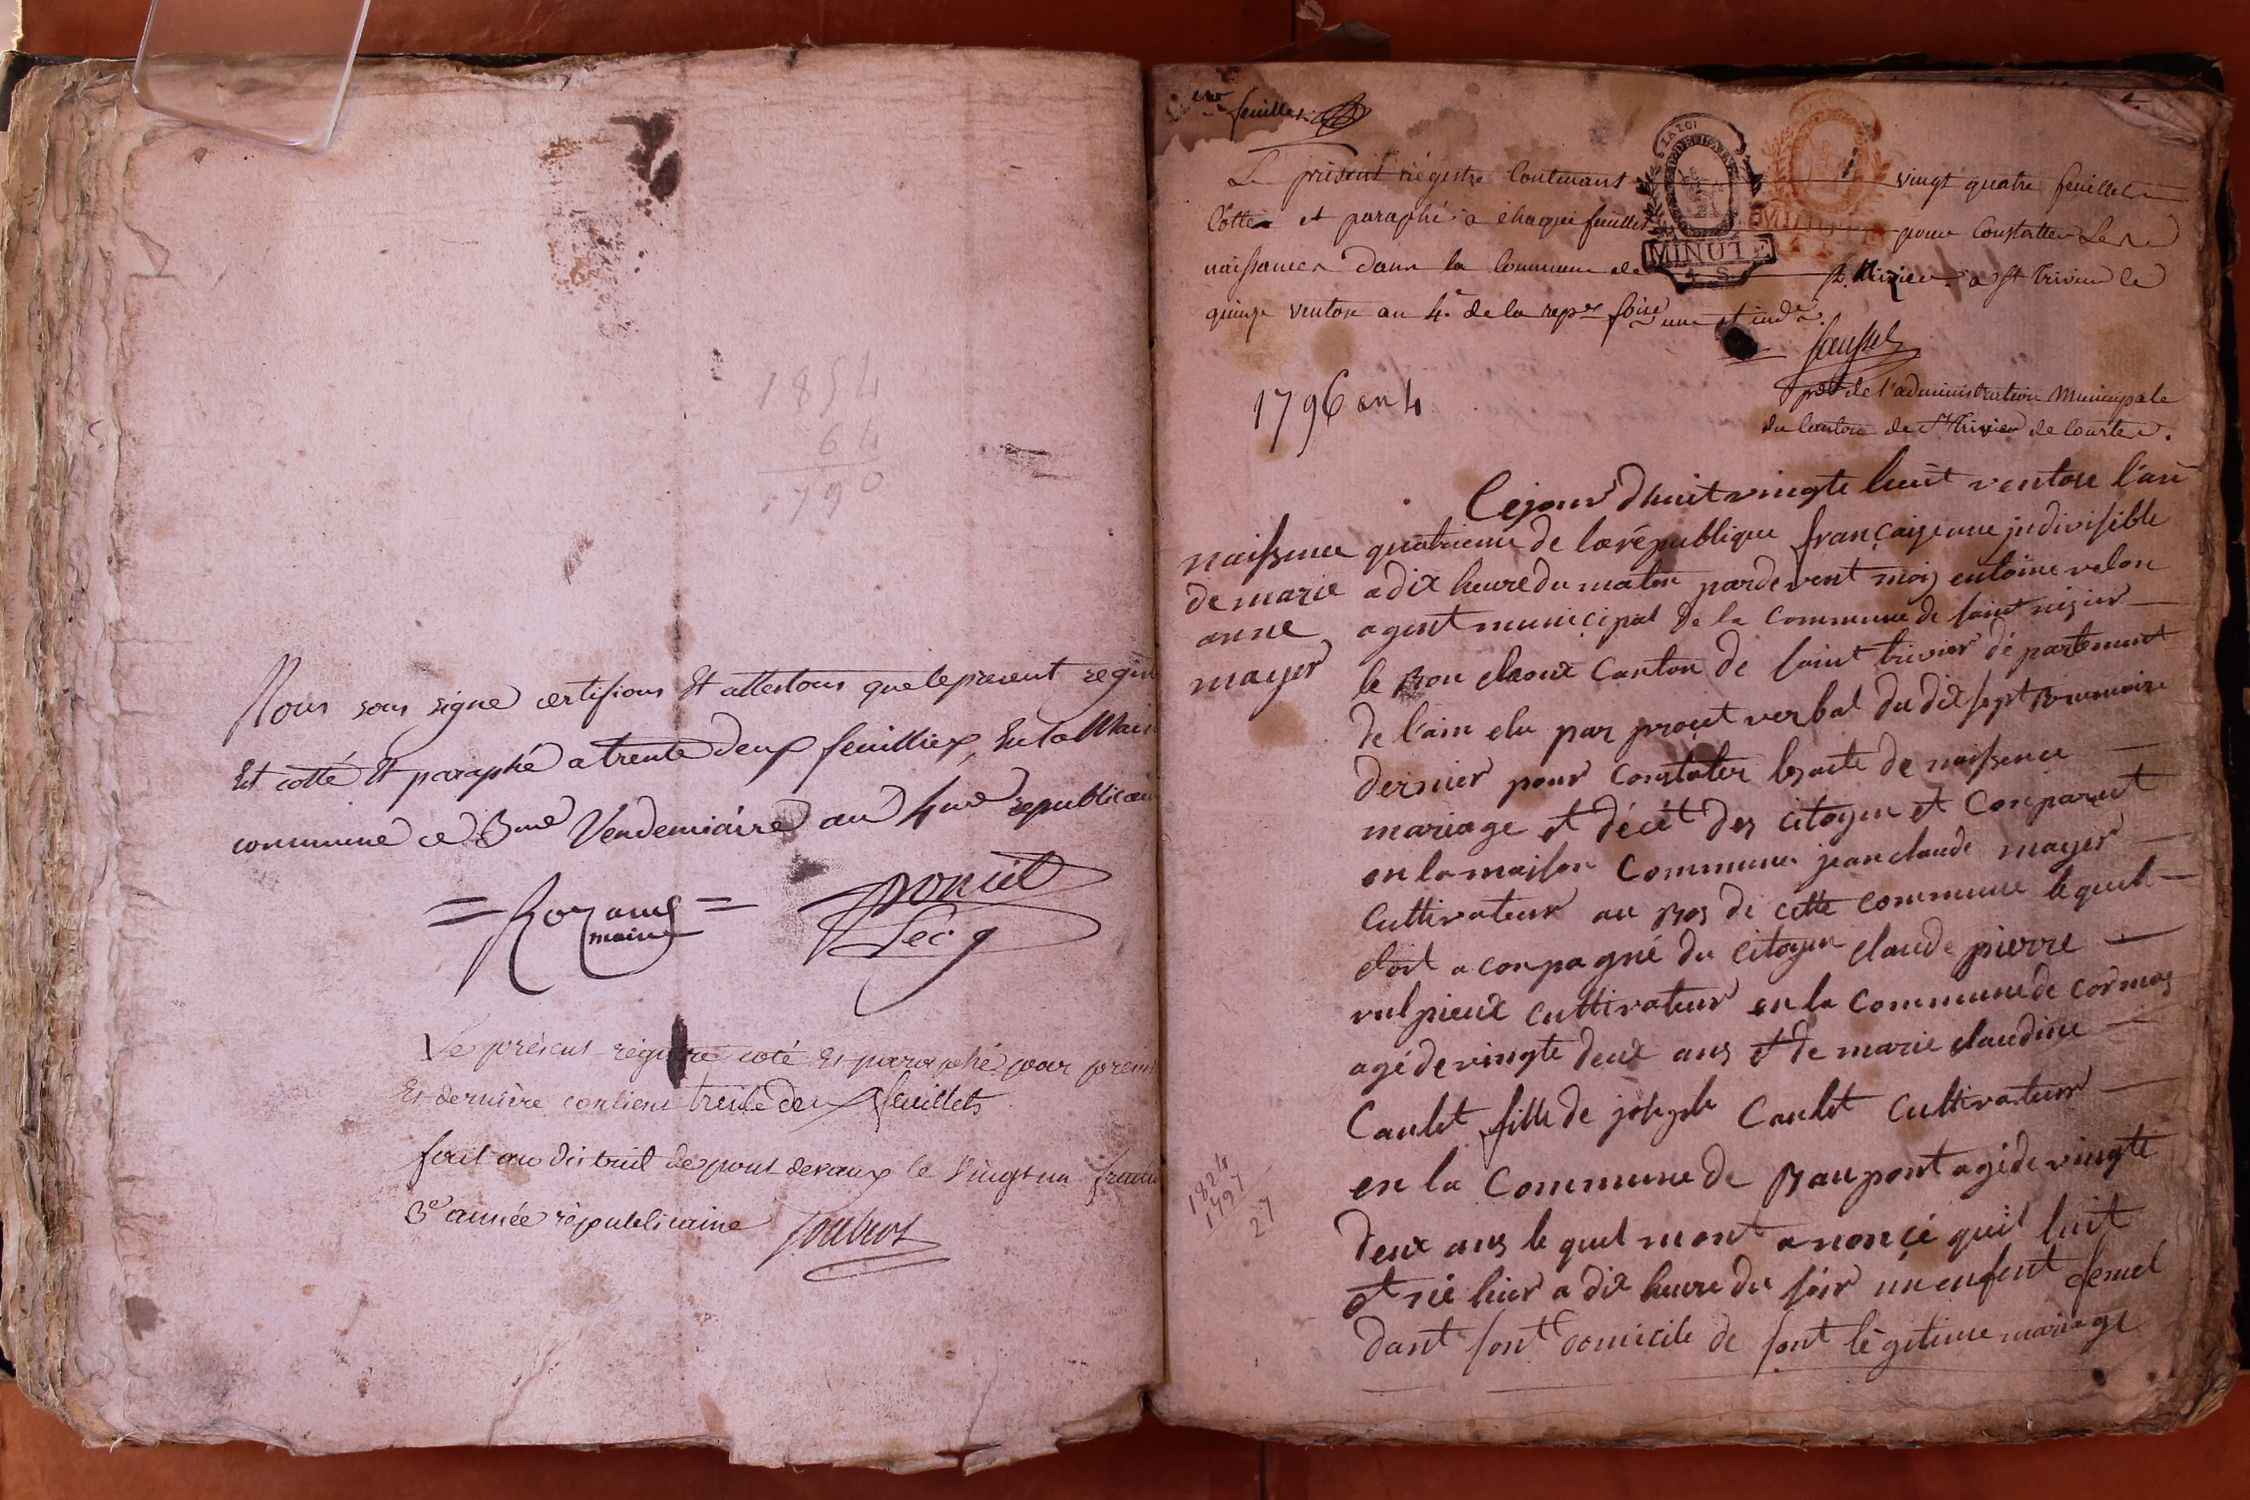 1854
64
1790
Nous sous signé certifions Et attestons que le present regis
Est cotté Et paraphé a trente deux feuilliex, En la Mais
commune ce 3me Vendemiaire an 4me republicain
= Rozand =
maire
poncet
Sec. g
Le présent régistre coté Et paraphé par premi
Et dernière contient trente deux feuillets
fait au district de pont devaux le Vingt un
3e année républicaine
1er feuillet
Le present régistre Contenant vingt quatre feuillets
Cottés et paraphé a chaque feuillet pour Constatter Les
naissances dans la Commune de St Nizier a St Trivier le
quinze ventose an 4e de la repe fse une et inde.
MINUTE
prdt de l'administration Municipale
du Canton de St Trivier de Courtes.
1796 an 4
naissance
de marie
anne
mayer
Cejour dhuit vingte huit ventose l'an
quatrieme de la république française une jndivisible
a dix heure du matin pardevent moy entoine velon
agent municipal de la commune de saint nizier
le Bouchoux Canton de saint trivier département
de l'ain elu par procet verbal du dix sept Brumaire
dernier pour constater les acte de naissence
mariage et décét des citoyen et Conparut
en la maison Commune jean claude mayer
Cultivateur au Bos de cette commune le quel
etoit aconpagné du citoyen claude pierre
vulpieux cultivateur en la Commune de cormoz
agé de vingte deux ans et de marie claudine
Caulet fille de joseph Caulet Cultivateur
en la Commune de Baupont agé de vingte
deux ans le quel m'ont anoncé quil luit
et né hier a dix heure du soir un enfent femel
dant sont domicile de sont légitime mariage
1824
1797
27